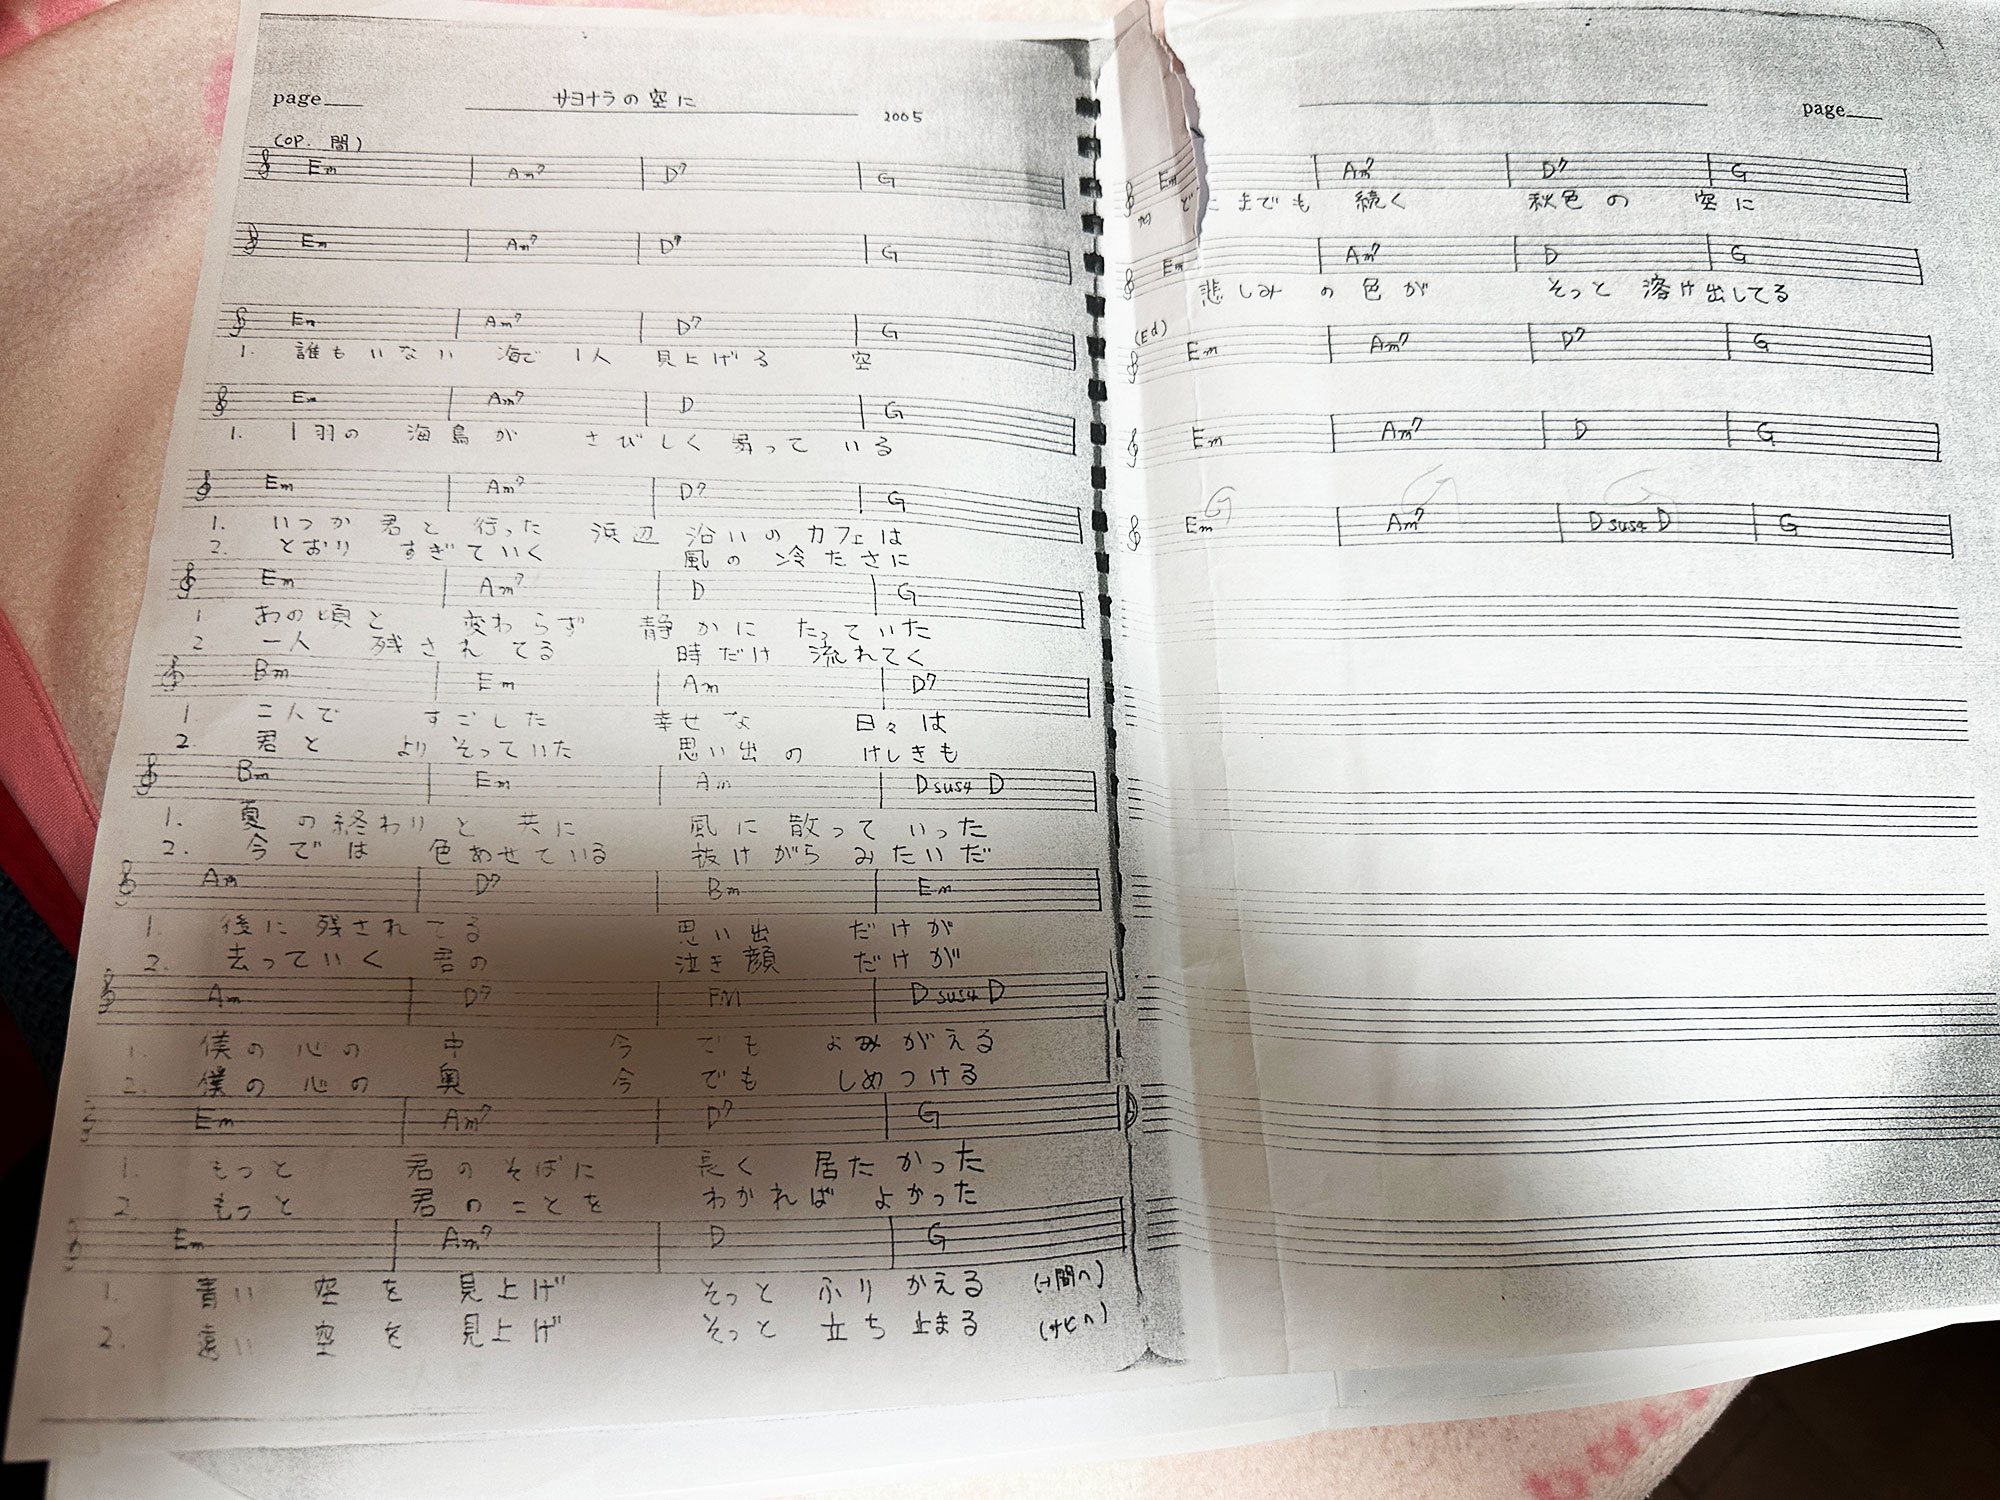 page サヨナラの空に 2005
(OP. 間)
Em Am7 D7 G
Em Am7 D7 G
Em Am7 D7 G
1. 誰もいない 海で 1人 見上げる 空
Em Am7 D G
1. 1羽の 海鳥が さびしく 舞って いる
Em Am7 D7 G
1. いつか 君と 行った 浜辺 沿いの カフェは
2. とおり すぎていく 風の 冷たさに
Em Am7 D G
1 あの頃と 変わらず 静かに たっていた
2 一人 残されてる 時だけ 流れてく
Bm Em Am D7
1. 二人で すごした 幸せな 日々は
2. 君と よりそっていた 思い出の けしきも
Bm Em Am Dsus4 D
1. 夏の終わりと 共に 風に 散って いった
2. 今では 色あせている 抜けがら みたいだ
Am D7 Bm Em
1. 後に 残されてる 思い出 だけが
2. 去っていく 君の 泣き顔 だけが
Am D7 FM Dsus4 D
1. 僕の心の 中 今 でも よみがえる
2. 僕の心の 奥 今 でも しめつける
Em Am7 D7 G
1. もっと 君のそばに 長く 居たかった
2. もっと 君のことを わかれば よかった
Em Am7 D G
1. 青い 空を 見上げ そっと ふりかえる (→間へ)
2. 遠い 空を 見上げ そっと 立ち止まる (サビへ)
page
Em Am7 D7 G
までも 続く 秋色の 空に
Em Am7 D G
悲しみの色が そっと 溶け出してる
(Ed)
Em Am7 D7 G
Em Am7 D G
G
Em Am7 Dsus4 D G